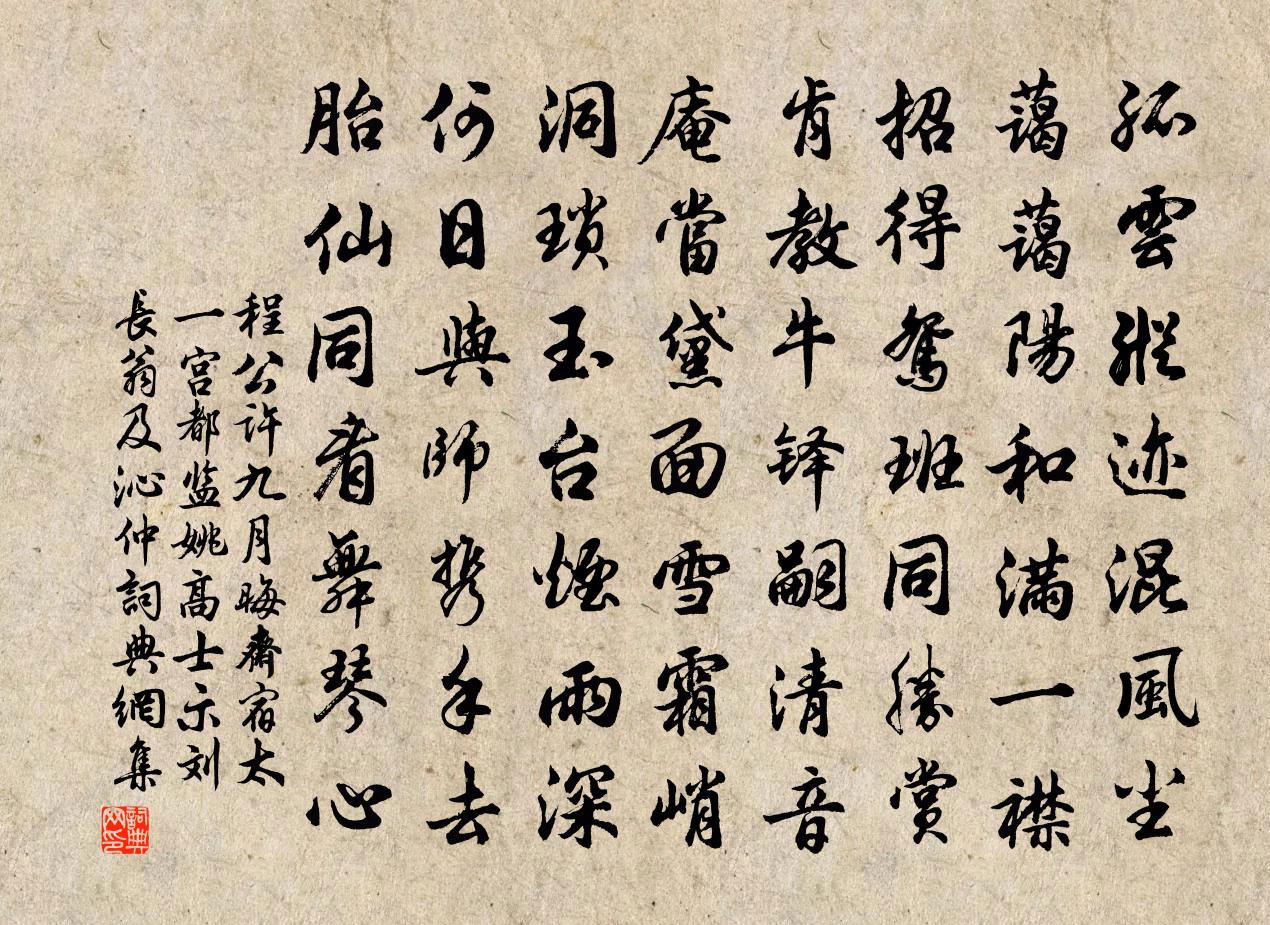 孤雲蹤迹混風尘
藹藹陽和滿一襟
招得鴛班同勝赏
肯教牛铎嗣清音
庵當黛面雪霜峭
洞瑣玉台煙雨深
何日與師携手去
胎仙同看舞琴心
程公許九月晦齋宿太
一宫都监姚高士示刘
長翁及沁仲詞典網集
詞典
网印